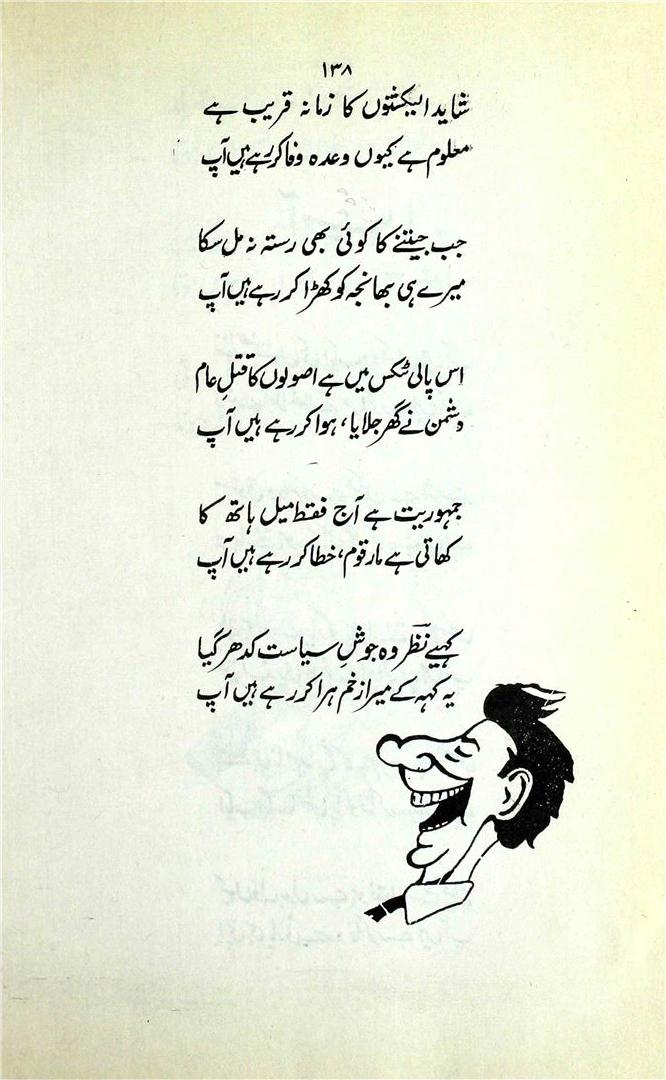 ۱۳۸
شاید الیکشنوں کا زمانہ قریب ہے
معلوم ہے کیوں وعدہ وفا کر رہے ہیں آپ
جب جیتنے کا کوئی بھی رستہ نہ مل سکا
میرے ہی بھانجہ کو کھڑا کر رہے ہیں آپ
اس پالی ٹکس میں ہے اصولوں کا قتلِ عام
دشمن نے گھر جلایا، ہوا کر رہے ہیں آپ
جمہوریت ہے آج فقط میل ہاتھ کا
کھاتی ہے مار قوم، خطا کر رہے ہیں آپ
کہیے نظرؔ وہ جوشِ سیاست کدھر گیا
یہ کہہ کے میرا زخم ہرا کر رہے ہیں آپ